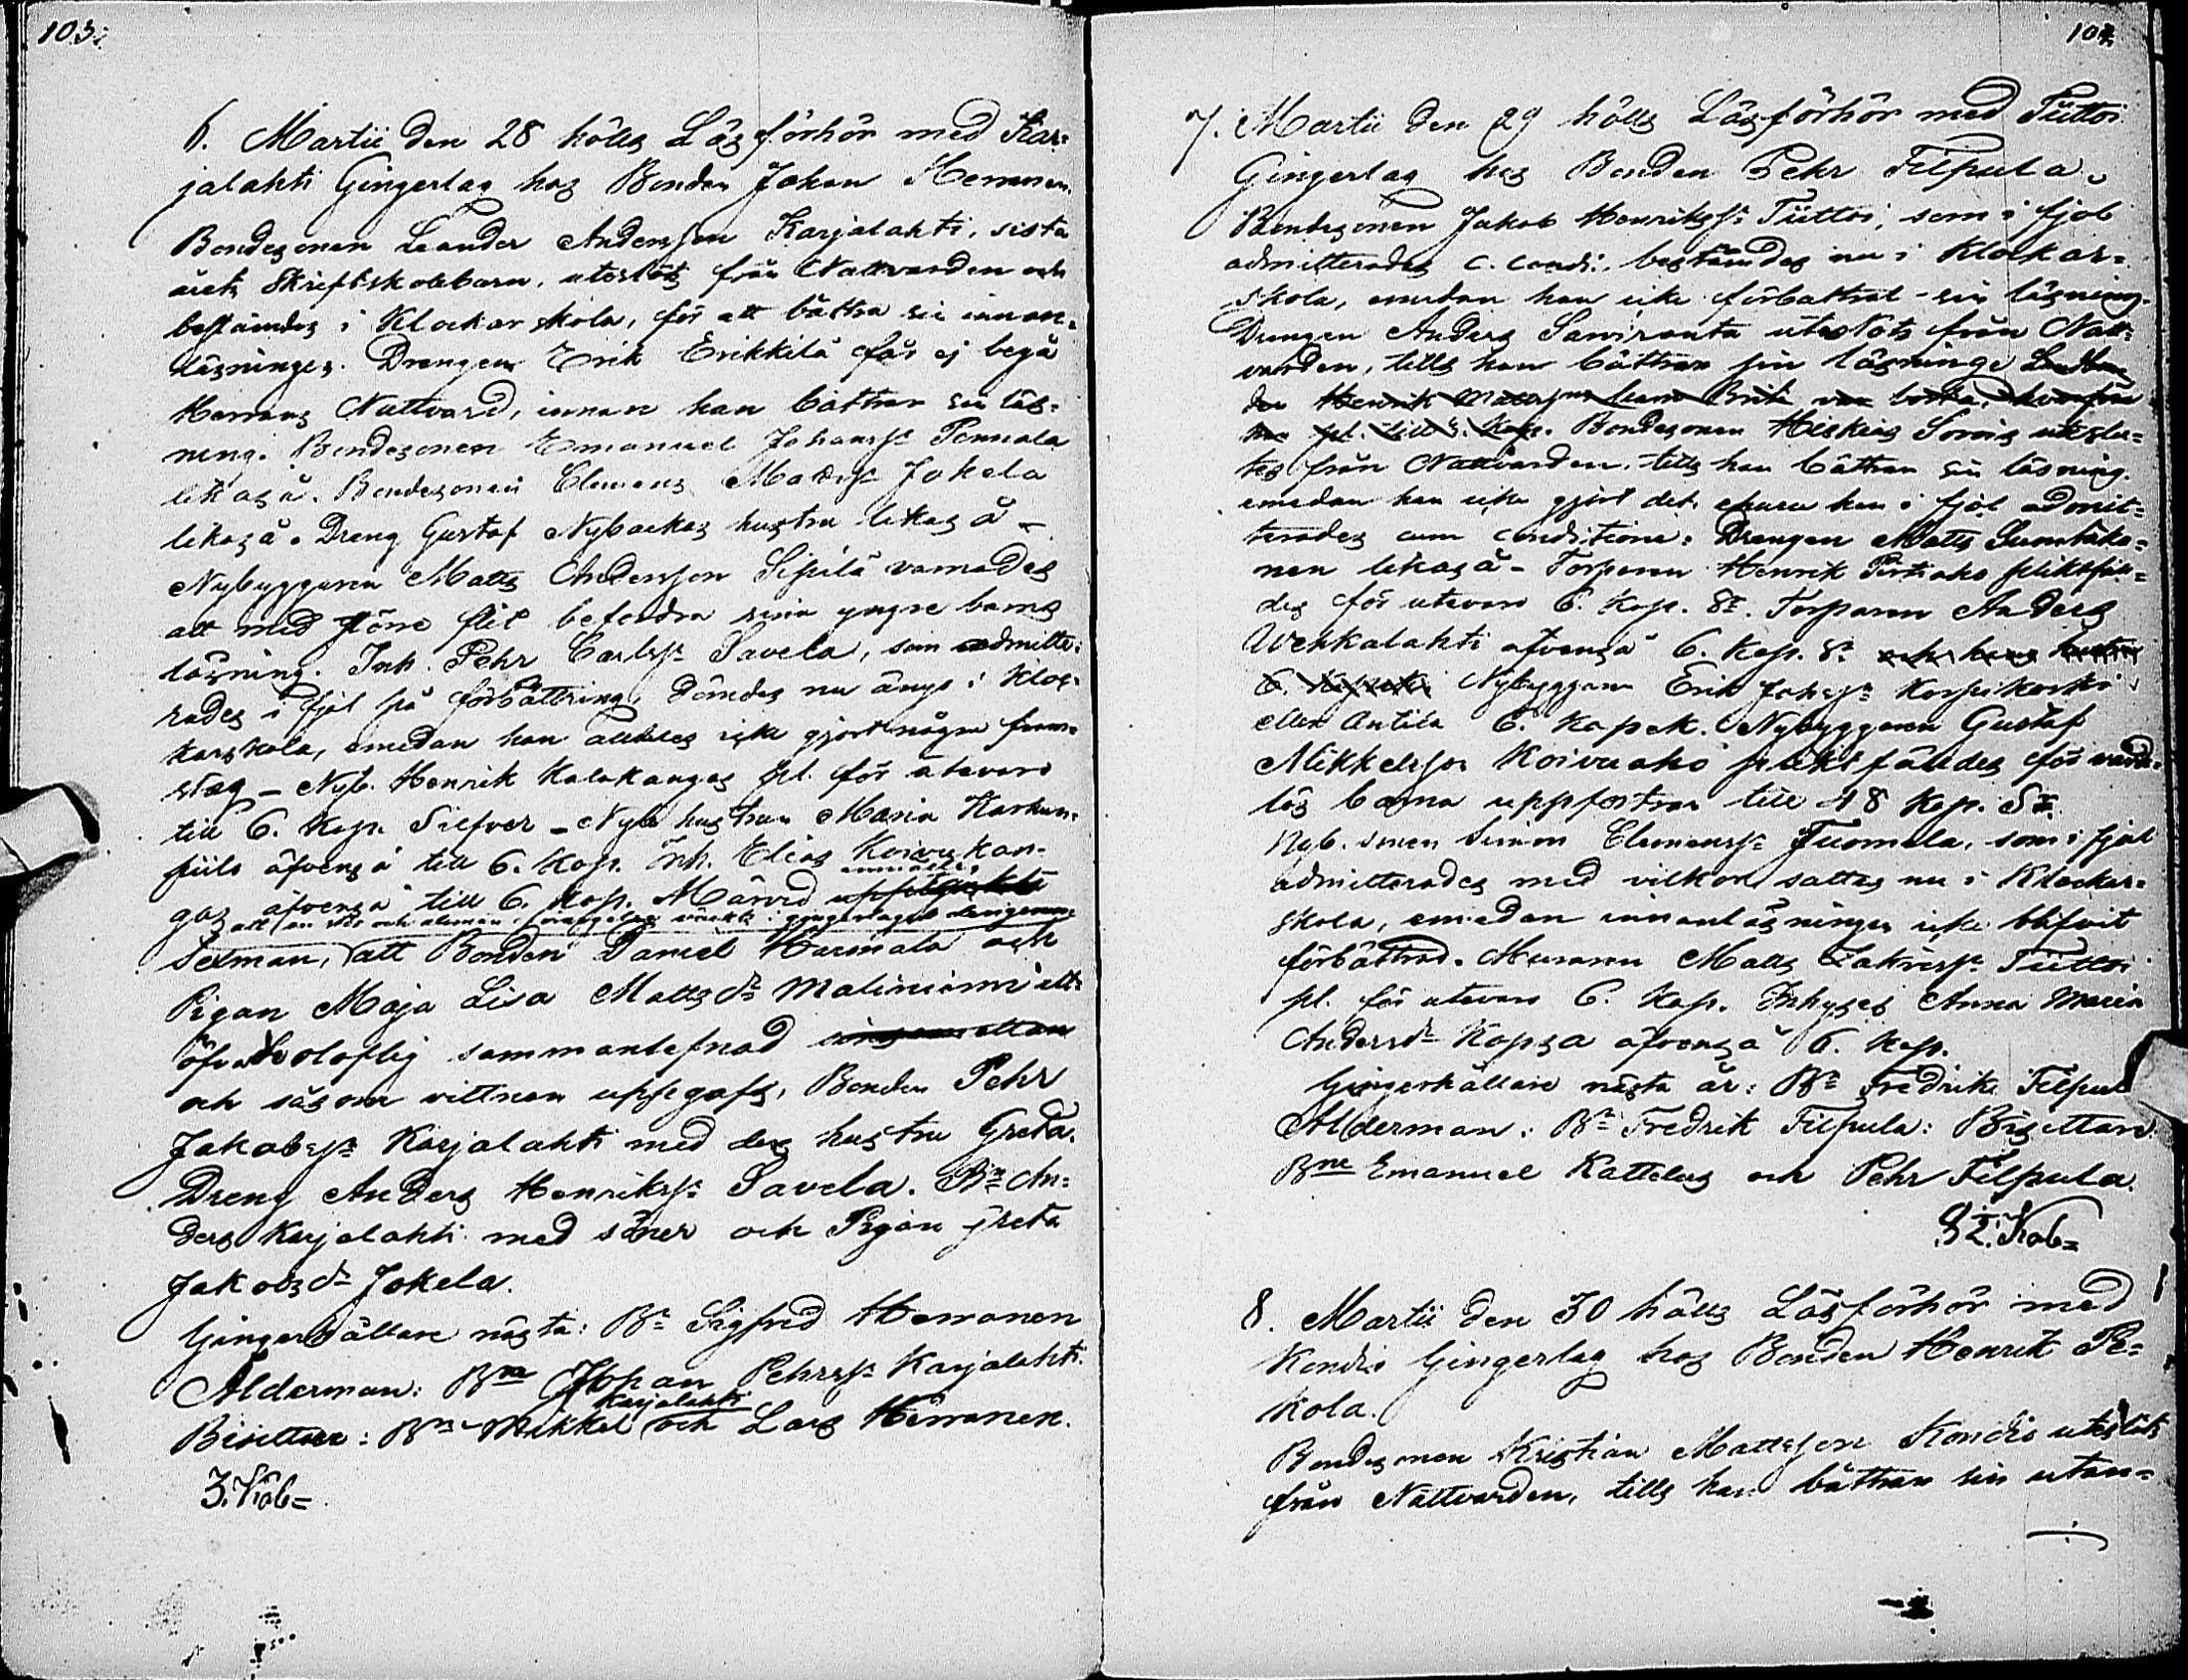 103.
6. Martii den 28 hölls Läsförhör med Kar-
jalahti Gingerlag hos Bonden Johan Herranen.
Bondesonen Leander Andersson Karjalahti, sista
årets Skriftskolebarn, uteslöts från Nattvarden och
bestämdes i Klockarskola, för att bättra sin innan-
läsninges. Drengen Erik Erikkilä får ej begå
Herrans Nattvard, innan han bättrar sin läs-
ning. Bondesonen Emanuel Johanss. Pennala
likaså. Bondesonen Clemens Matss. Jokela
likaså. Dreng Gustaf Nybackas hustru likaså -
Nybyggaren Matts Andersson Sipilä varnades
att med större flit befordra sina yngre barns
läsning. Inh. Pehr Carlss. Savela, som admitte-
rades i fjol på förbättring, dömdes nu ånyo i Kloc-
karskola, emedan han alldeles icke gjort några fram-
steg - Nyb. Henrik Kalakangas pl. för utevaro
till 6. Kop. Silfver - Nyb. hustrun Maria Karhun-
piilo äfvenså till 6. Kop. Inh. Elias Koivukan-
gas äfvenså till 6. Kop. Märvid anmältes
Sexman, att Bonden Daniel Harmala och
Pigan Maja Lisa Mattsdr Maliniemi ut-
öfvade oloflig sammanlefnad
och såsom vittnen uppgafs, Bonden Pehr
Jakobss. Karjalahti med dess hustru Greta.
Dreng Anders Henrikss. Savela. Bn An-
ders Karjalahti med söner och Pigan Greta
Jakobsdr Jokela.
Gingerhållare nästa: Bn Sigfred Herranen
Ålderman: Bne Johan Pehrss. Karjalahti.
Karjalahti
Bisittare: Bne Mikkel och Lars Herranen.
3. Kob=
104.
7. Martii den 29 hölls Läsförhör med Tiittoi
Gingerlag hos Bonden Pehr Filpula.
Bondesonen Jakob Henrikss. Tiittoi, som i fjol
admitterades c. condi., bestämdes nu i Klockar-
skola, emedan han icke förbättrat sin läsning.
Drengen Anders Saviranta uteslöts från Natt-
varden, tills han bättrar sin läsninge
Bondesonen Hiskias Sorois uteslu-
tes från Nattvarden, tills han bättrar sin läsning.
emedan han icke gjort det, ehuru han i fjol admit-
terades cum conditione. Drengen Matts Suontaka-
nen likaså - Torparen Henrik Pirttiaho pliktfäl-
des för utevaro 6. Kop. Sr. Torparen Anders
Wehkalahti äfvenså 6. Kop. Sr. och hans hustru
Nybyggaren Erik Johss. Korpikoski
eller Antila 6. Kopek. Nybyggaren Gustaf
Mikkelsson Koivuaho pliktfäldes för vård-
lös barna uppfostran till 48 Kop. Sr.
Nyb. sonen Simon Clemenss. Tuomela, som i fjol
admitterades med vilkor, sattes nu i Klockar-
skola, emedan innanläsningen icke blifvit
förbättrad. Muraren Matts Zakriss. Tiittoi
pl. för utevaro 6. Kop. Inhyses Anna Maria
Andersdr Kopsa äfvenså 6. Kop.
Gingerhållare nästa år: Bn Fredrik Filpula
Ålderman: Bn Fredrik Filpula: Bisittare:
Bne Emanuel Kattelus och Pehr Filpula.
32. Kob=
8. Martii den 30 hölls Läsförhör med
Kondio Gingerlag hos Bonden Henrik Pe-
kola.
Bondesonen Kristian Mattsson Kondio uteslöts
från Nattvarden, tills han bättrar sin utan-